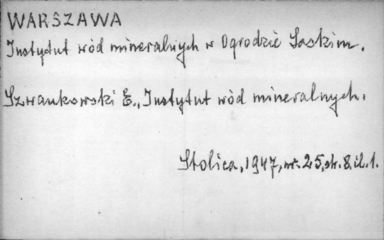 WARSZAWA
Instytut wód mineralnych w Ogrodzie Saskim.
Szwankowski E., Instytut wód mineralnych.
Stolica, 1947, nr. 25, str. 8, il. 1.